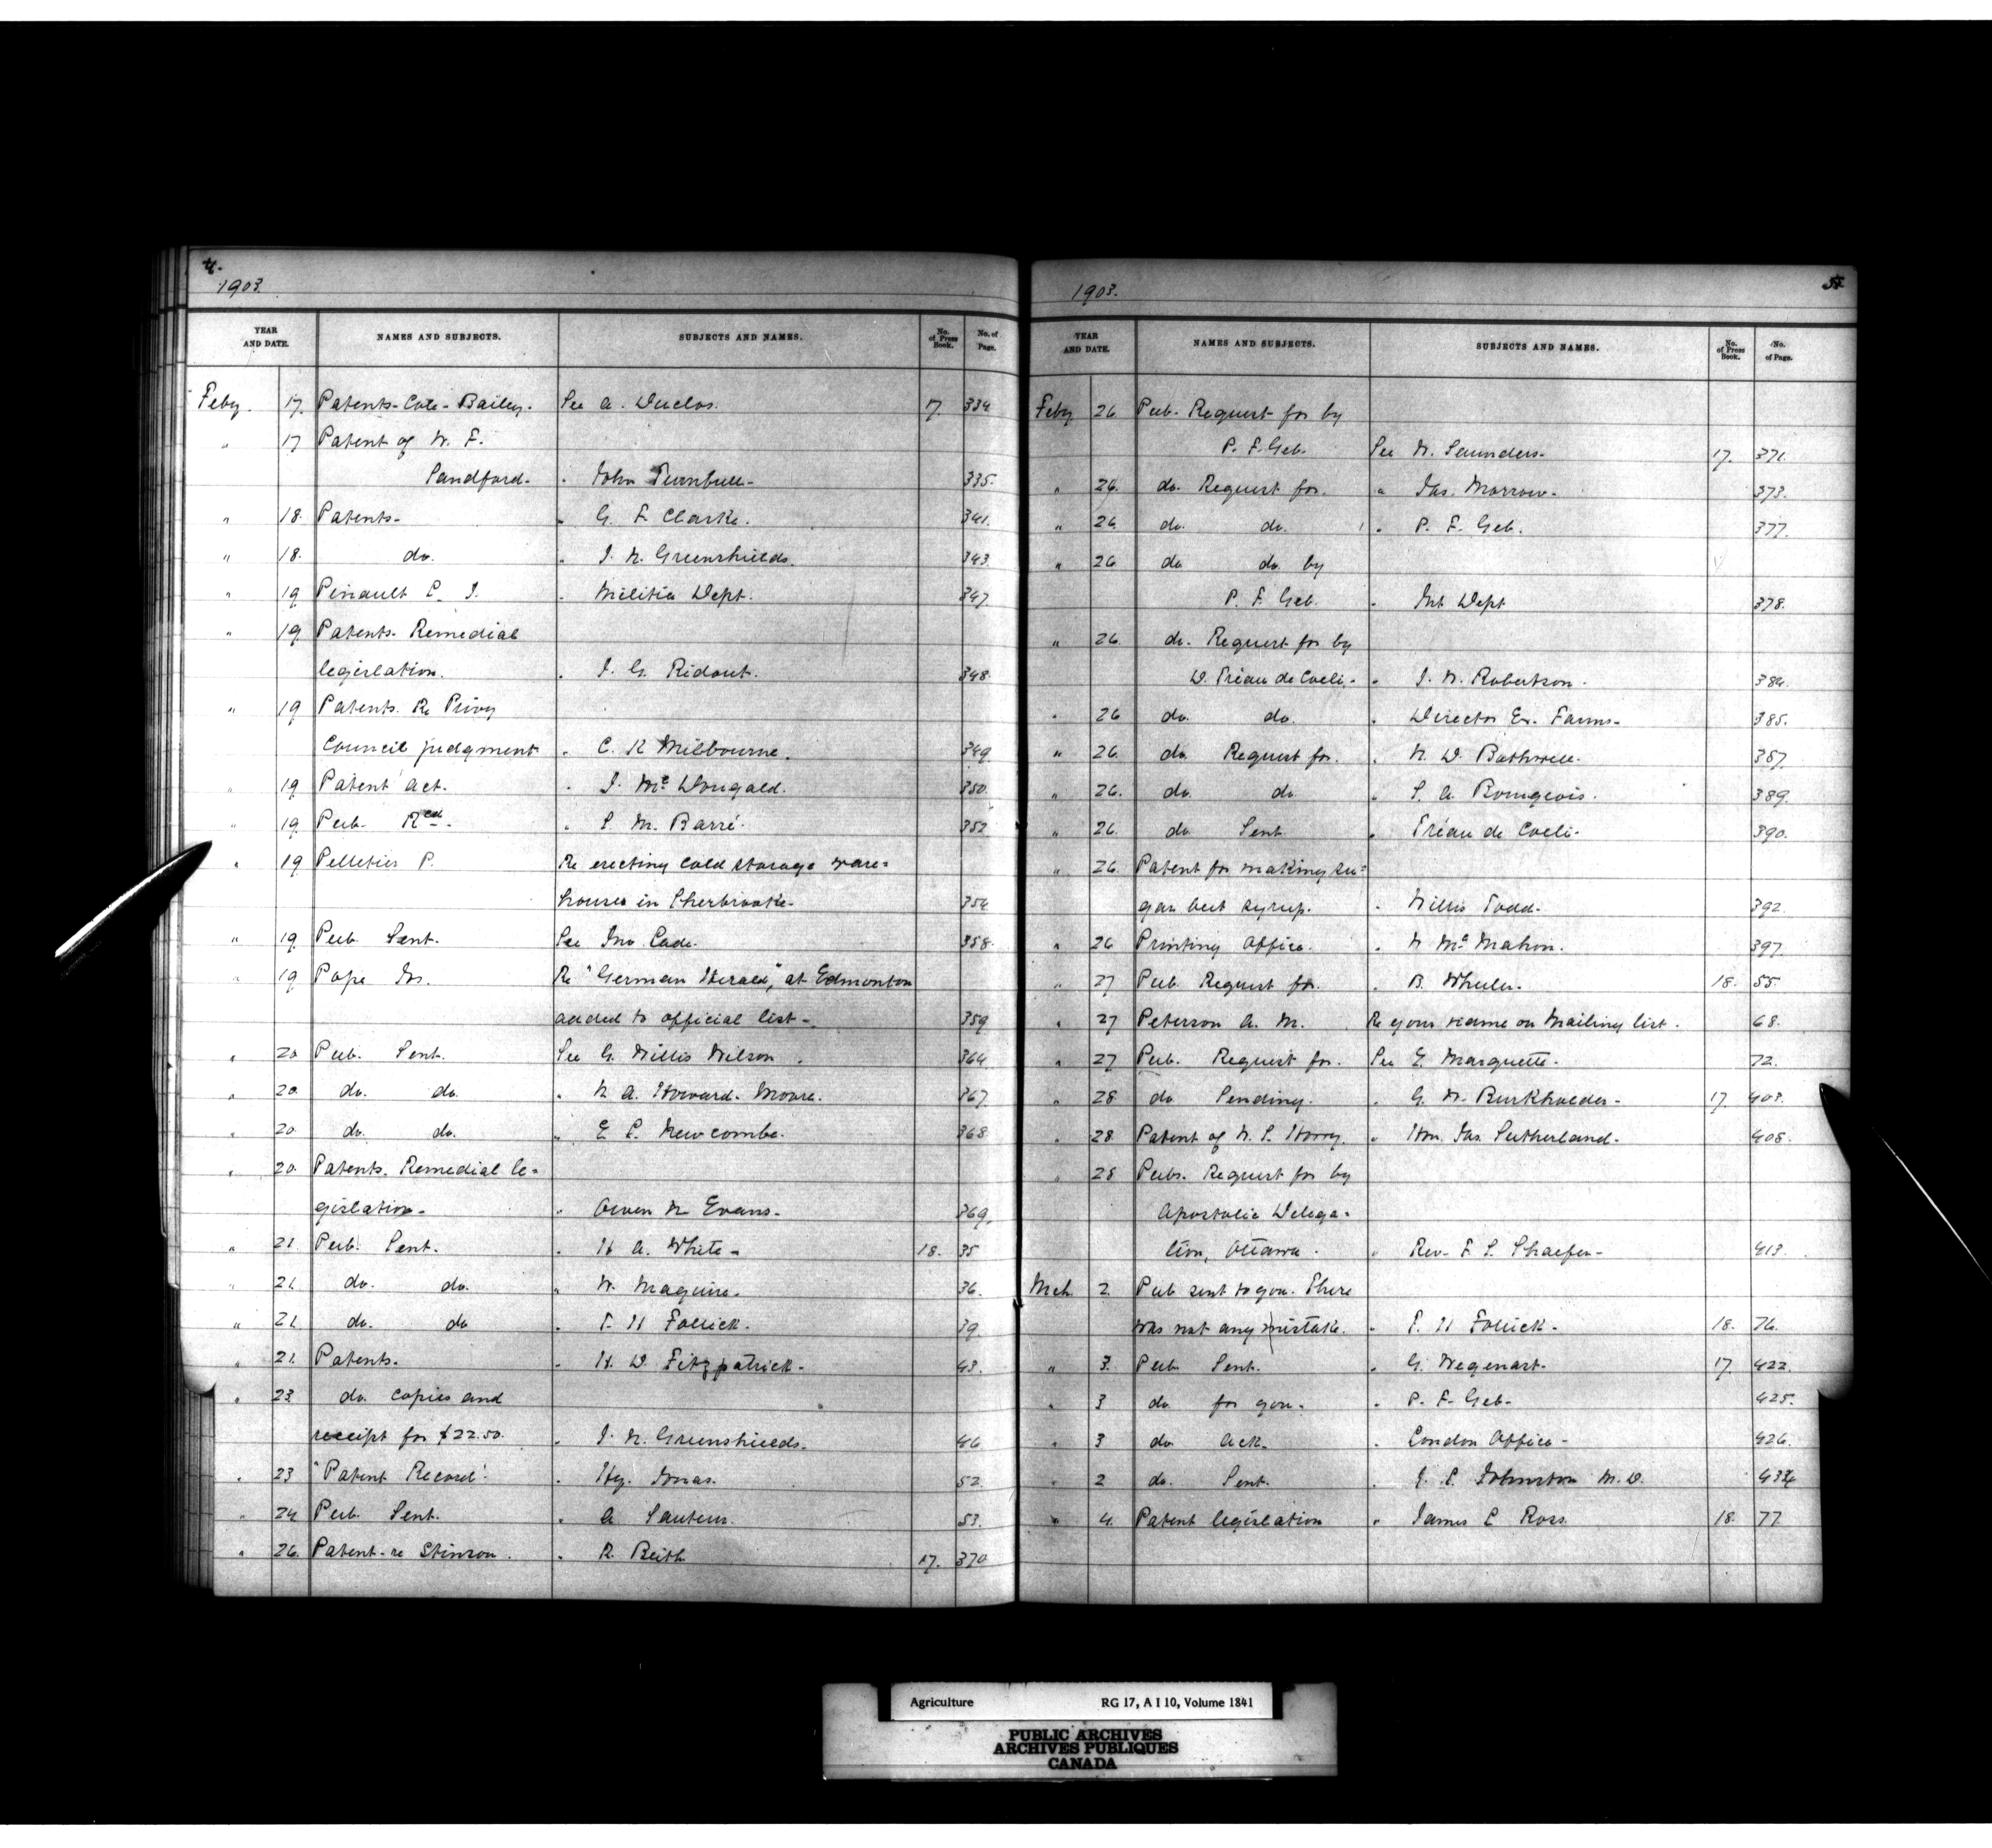 4.
1903.
YEAR AND DATE. NAMES AND SUBJECTS. SUBJECTS AND NAMES. No. of Press Book. No. of Page.
Feby. 17. Patents-Cote-Bailey. See A. Duclos. 17. 334
" 17 Patent of W. F.
Sandford. " John Turnbull. 335.
" 18. Patents. " G. F. Clarke. 341.
" 18. do. " J. N. Greenshields. 343.
" 19 Pinault L. J. " Militia Dept. 347.
" 19 Patents. Remedial
legislation. " J. G. Ridout. 348.
" 19 Patents. Re Privy
Council judgment " C. R. Milbourne. 349.
" 19 Patent Act. " J. McDougald. 350.
" 19. Pub. Recd. " S. M. Barré. 352
" 19 Pelletier P. Re erecting cold storage ware=
houses in Sherbrooke. 354
" 19. Pub. Sent. See Jno. Eade. 358.
" 19 Pope Jos. Re "German Herald", at Edmonton
added to official list. 359
" 20 Pub. Sent. See G. Willis Wilson. 364
" 20. do. do. " N. A. Howard-Moore. 367.
" 20. do. do. " E. L. Newcombe. 368.
" 20. Patents. Remedial le=
gislation. " Owen N. Evans. 369.
" 21. Pub. Sent. " H. A. White. 18. 35
" 21. do. do. " W. Maguire. 36.
" 21. do. do " T. H. Follick. 39.
" 21. Patents. " H. D. Fitzpatrick. 43.
" 23. do. copies and
receipt for $22.50. " J. N. Greenshields. 46
" 23 "Patent Record". " Hy. Jonas. 52.
" 24 Pub. Sent. " A. Sauteur. 53.
" 26. Patent-re Stinson. " R. Beith 17. 370
5
1903.
YEAR AND DATE. NAMES AND SUBJECTS. SUBJECTS AND NAMES. No. of Press Book. No. of Page.
Feby 26 Pub. Request for by
P. F. Geb. See W. Saunders. 17. 371.
" 26. do. Request for. " Jas. Morrow. 373.
" 26 do. do. " P. F. Geb. 377.
" 26 do do. by
P. F. Geb. " Int Dept 378.
" 26. do. Request for by
D. Tréau de Coeli. " J. W. Robertson. 384.
" 26 do. do. " Director Ex. Farms. 385.
" 26. do. Request for. " N. D. Bothwell. 387.
" 26. do. do. " S. A. Bourgeois. 389.
" 26. do Sent " Tréau de Coeli. 390.
" 26. Patent for making su=
gar beet syrup. " Willis Todd. 392.
" 26 Printing Office. " N. McMahon. 397.
" 27 Pub. Request for. " B. Wheeler. 18. 55.
" 27 Peterson A. M. Re your name on mailing list. 68.
" 27 Pub. Request for. See E. Marquette. 72.
" 28 do Sending. " G. W. Burkholder. 17. 403.
" 28. Patent of W. S. Horry. " Hon. Jas. Sutherland. 408.
" 28 Pubs. Request for by
Apostolic Delega=
tion, Ottawa. " Rev. F. L. Shaefer. 413.
Mch. 2. Pub sent to you. There
was not any mistake. " T. H. Follick. 18. 76.
" 3. Pub. Sent. " G. Wegenast. 17. 422.
" 3 do. for you. " P. F. Geb. 425.
" 3 do. Ack. " London Office. 426.
" 2 do. Sent. " J. L. Johnston M.D. 434
" 4. Patent legislation " James L Ross. 18. 77.
Agriculture RG 17, A I 10, Volume 1841
PUBLIC ARCHIVES
ARCHIVES PUBLIQUES
CANADA